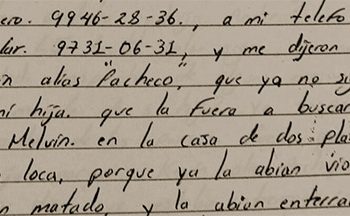 ero. 9946-28-36., a mi telefo
lar. 9731-06-31, y me dijeron
n alias "Pacheco," que ya no su
mi hija. que la fuera a buscar
Melvin. en la casa de dos pla
loca, porque ya la abian vio
n matado y la abian enterra